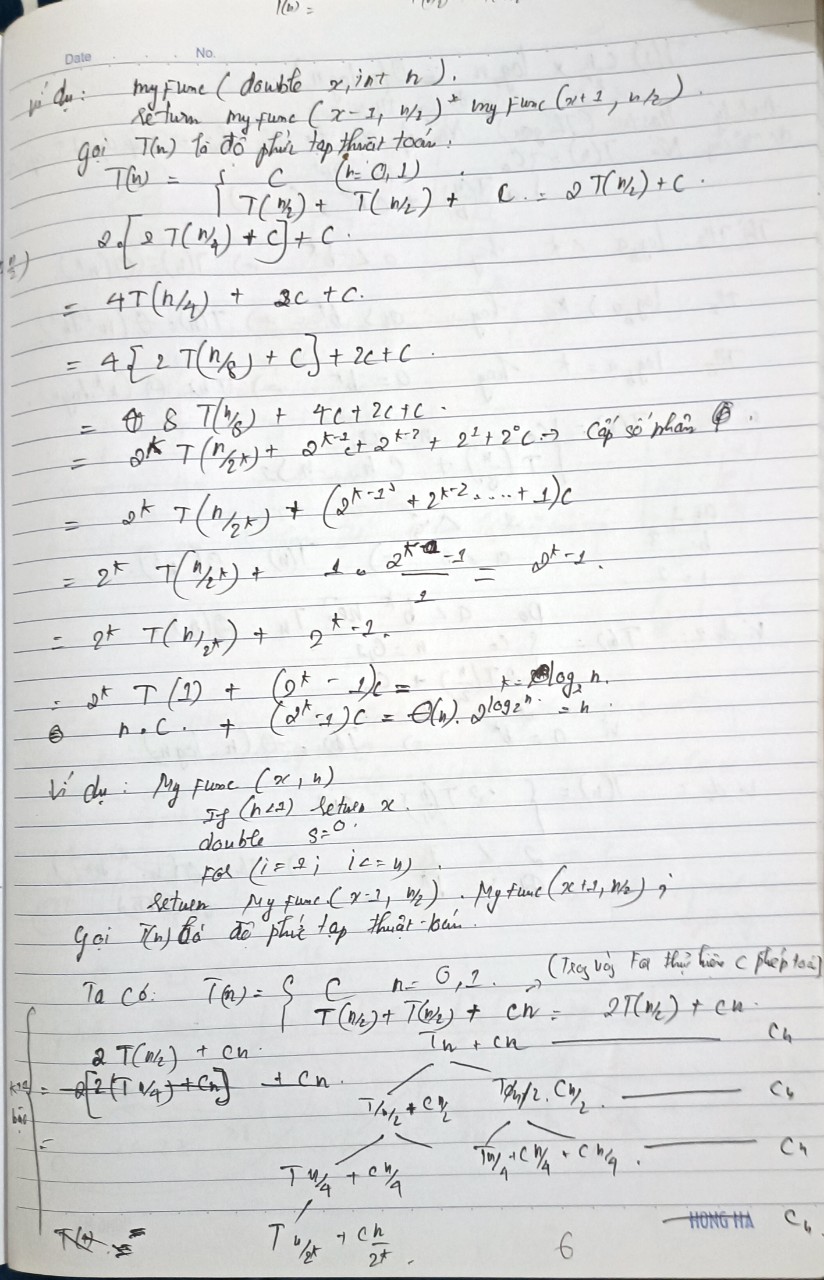 T(n) =
Date No.
Ví dụ: myFunc (double x, int n).
return myFunc (x-1, n/2) * myFunc (x+1, n/2)
gọi T(n) là độ phức tạp thuật toán:
T(n) = { C (n=0,1)
T(n/2) + T(n/2) + C = 2T(n/2) + C.
2.[2T(n/4) + C] + C.
= 4T(n/4) + 2C + C.
= 4[2T(n/8) + C] + 2C + C.
= 8 T(n/8) + 4C + 2C + C.
= 2^k T(n/2^k) + 2^{k-1}c + 2^{k-2} + 2^1 + 2^0 C → Cấp số nhân
= 2^k T(n/2^k) + (2^{k-1} + 2^{k-2} .... + 1)C
= 2^k T(n/2^k) + 1 . (2^k - 1)/1 = 2^k - 1.
= 2^k T(n/2^k) + 2^k - 1.
= 2^k T(1) + (2^k - 1)C = k = log_2 n.
n.C. + (2^k - 1)C = Θ(n). 2^{log_2 n} = n
Ví dụ: My Func (x, n)
If (n<1) return x.
double s=0.
For (i=1; i<=n)
return MyFunc(x-1, n/2) . MyFunc(x+1, n/2);
Gọi T(n) là độ phức tạp thuật toán.
Ta có: T(n) = { C n = 0, 1. → (Trong vòng For thực hiện C phép toán)
T(n/2) + T(n/2) + cn = 2T(n/2) + cn.
2T(n/2) + cn. Tn + cn Cn
= 2[2(T n/4) + Cn] + Cn. T n/2 + C n/2 T n/2 . C n/2 Cn
=
T n/4 + C n/4 T n/4 + C n/4 + C n/4. Cn
T n/2^k + Cn/2^k. Cn
6
HONG HA